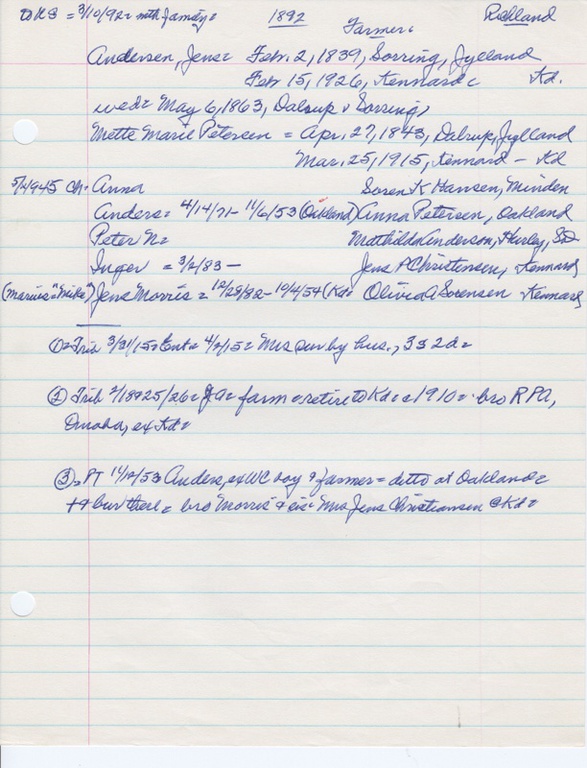 DKS = 3/10/92 = mth family = 1892 Richland
Farmer =
Andersen, Jens = Feb. 2, 1839, Sorring, Jylland
Feb 15, 1926, Kennard = Kd.
wed = May 6, 1863, Dalrup, Sorring,
Mette Marie Petersen = Apr. 27, 1843, Dalrup, Jylland
Mar. 25, 1915, Kennard - Kd
Ch. Anna Soren K Hansen, Minden
Anders = 4/14/71 - 11/6/53 (Oakland) Anna Petersen, Oakland
Peter N = Mathilda Anderson, Hurley, SD
Inger = 3/2/83 - Jens P Christensen, Kennard
(Marius = "Mike") Jens Morris = 12/29/82 - 10/4/54 (Kd = Olivia A Sorensen Kennard
① = Trib 3/31/15 = Ent = 4/2/15 = Mrs sur by hus., 3s 2d =
② Trib 2/18 & 25/26 = JA = farm = retire to Kd = c 1910 = bro R PA,
Omaha, ex Kd =
③ = PT 11/12/53 Anders, ex WC boy & farmer = ditto at Oakland =
& bur there = bro "Morris" & sis = Mrs Jens Christiansen @ Kd =